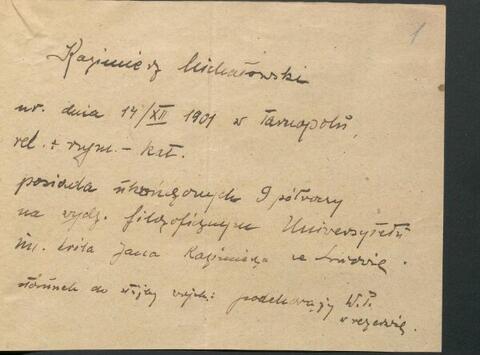 1
Kazimierz Michałowski
ur. dnia 14/XII 1901 w Tarnopolu,
rel. rzym. - kat.
posiada ukończonych 9 półroczy
na wydz. filozoficznym Uniwersytetu
im. króla Jana Kazimierza we Lwowie.
stosunek do służby wojsk: podchorąży W.P.
w rezerwie.